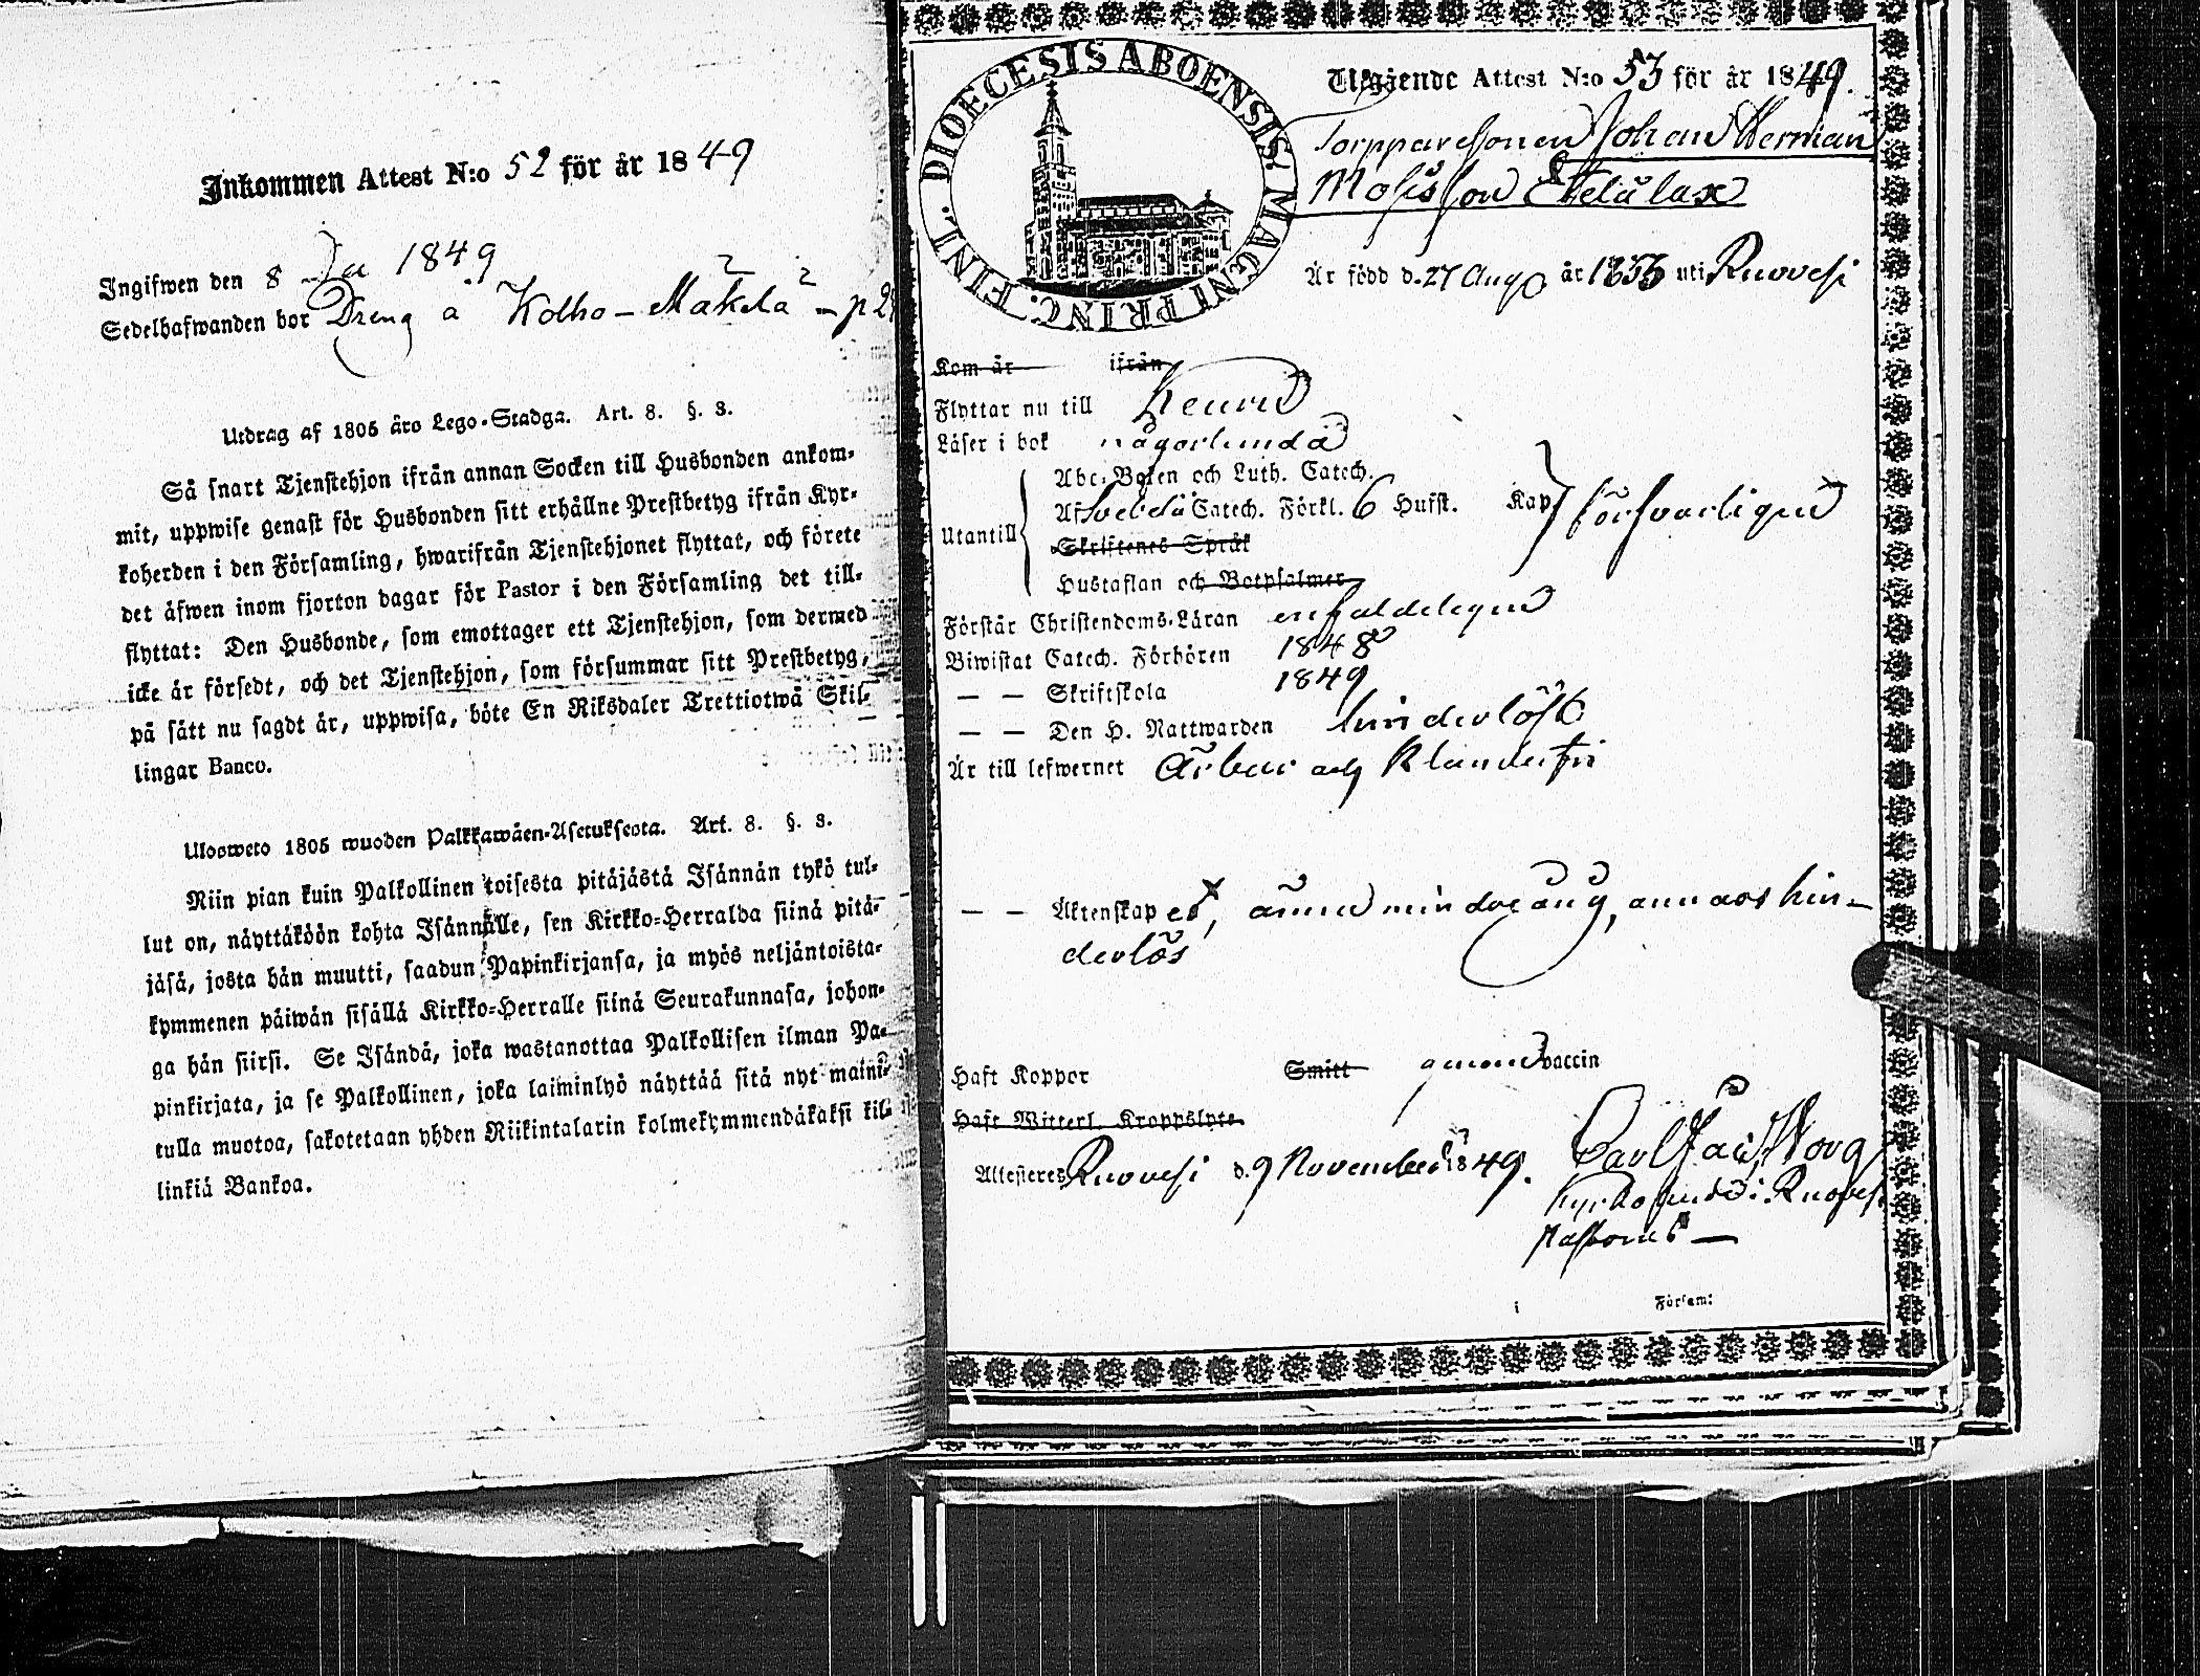 Inkommen Attest N:o 52 för år 1849
Ingifwen den 8 1849
Sedelhafwanden bor Dreng å Kolho-Mäkelä - p 2
Utdrag af 1805 års Lego-Stadga. Art. 8. §. 3.
Så snart Tjenstehjon ifrån annan Socken till Husbonden ankom-
mit, uppwise genast för Husbonden sitt erhållne Prestbetyg ifrån Kyr-
koherden i den Församling, hwarifrån Tjenstehjonet flyttat, och förete
det äfwen inom fjorton dagar för Pastor i den Församling det till-
flyttat: Den Husbonde, som emottager ett Tjenstehjon, som dermed
icke är försedt, och det Tjenstehjon, som försummar sitt Prestbetyg,
på sätt nu sagdt är, uppwisa, böte En Riksdaler Trettiotwå Skil-
lingar Banco.
Ulosweto 1805 wuoden Palkkawäen-Asetuksesta. Art. 8. §. 3.
Niin pian kuin Palkollinen toisesta pitäjästä Isännän tykö tul-
lut on, näyttäköön kohta Isännälle, sen Kirkko-Herralda siinä pitä-
jäsä, josta hän muutti, saadun Papinkirjansa, ja myös neljäntoista-
kymmenen päiwän sisällä Kirkko-Herralle siinä Seurakunnasa, johon-
ga hän siirsi. Se Isändä, joka wastanottaa Palkollisen ilman Pa-
pinkirjata, ja se Palkollinen, joka laiminlyö näyttää sitä nyt maini-
tulla muotoa, sakotetaan yhden Riikintalarin kolmekymmendäkaksi kil-
linkiä Bankoa.
DIOECESIS ABOENSIS MAGNI PRINC. FINL.
Utgående Attest N:o 53 för år 1849.
Torpparesonen Johan Herman
Mosisson Etelälax
Är född d. 27 Aug. år uti Ruovesi
Kom år ifrån
Flyttar nu till Keuru
Läser i bok någorlunda
Utantill
Abc-Boken och Luth. Catech.
Af Svebelii Catech. Förkl. 6 Hufst. Kap. försvarligen
Skriftenes Språk
Hustaflan och Botpsalmer
Förstår Christendoms-Läran enfaldeligen
Biwistat Catech. Förhören 1848
— — Skriftskola 1849
— — Den H. Nattwarden hinderlöst
Är till lefwernet ärbar och klanderfri
— — Äktenskap ej, ännu minderårig, annars hin-
derlös
Haft Koppor Smitt genom vaccin
Haft Witterl. Kroppslyte
Attesteres Ruovesi d. 9 November 1849.
i Ruovesi
i Församl